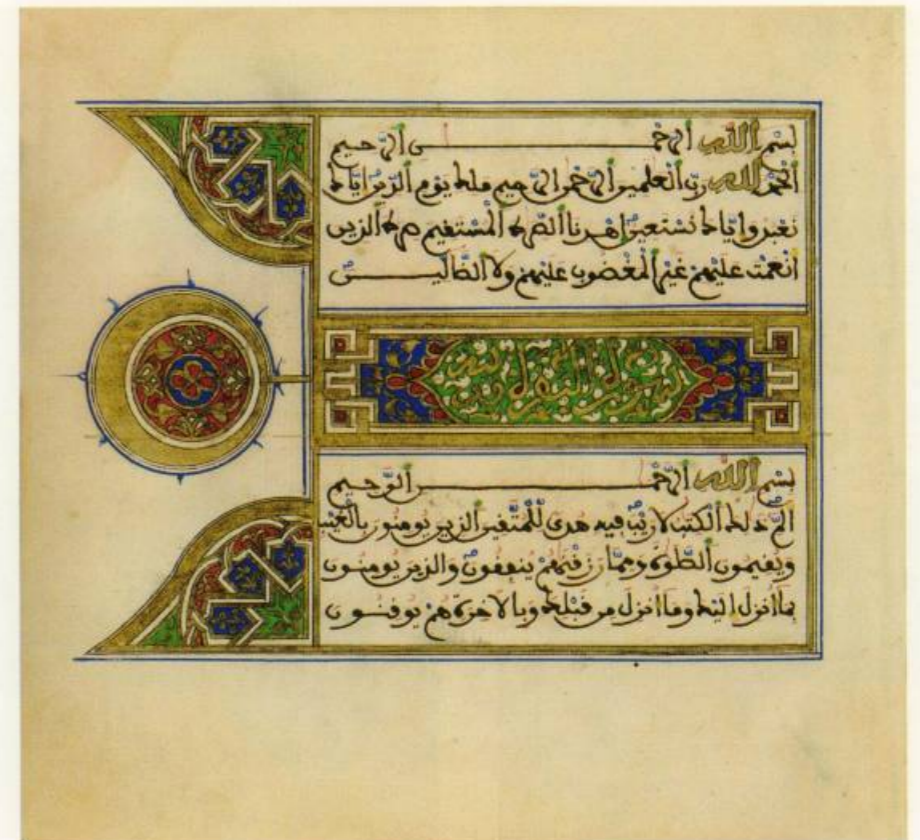 بسم الله الرحمن الرحيم
الحمد لله رب العلمين الرحمن الرحيم ملك يوم الدين اياك
نعبد واياك نستعين اهدنا الصرط المستقيم صرط الذين
انعمت عليهم غير المغضوب عليهم ولا الضالين
بسم الله الرحمن الرحيم
الم ذلك الكتب لا ريب فيه هدى للمتقين الذين يومنون بالغيب
ويقيمون الصلوة ومما رزقنهم ينفقون والذين يومنون
بما انزل اليك وما انزل من قبلك وبالاخرة هم يوقنون